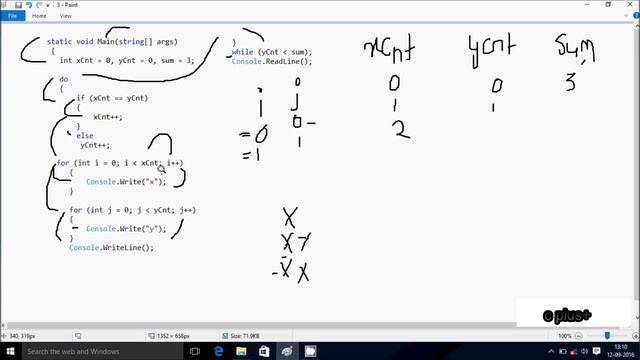 3 - Paint
static void Main(string[] args)
{
int xCnt = 0, yCnt = 0, sum = 3;
do
{
if (xCnt == yCnt)
{
xCnt++;
}
else
yCnt++;
for (int i = 0; i < xCnt; i++)
{
Console.Write("x");
}
for (int j = 0; j < yCnt; j++)
{
Console.Write("y");
}
Console.WriteLine();
}
while (yCnt < sum);
Console.ReadLine();
xCnt yCnt Sum
0 0 3
1 1
2
i j
=0 0-
=1 1
X
XY
-X X
c plus+
340, 319px
1352 × 658px
Size: 71.9KB
100%
Search the web and Windows
13:10
12-09-2016